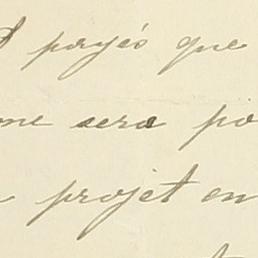 payés que
me sera po
projet en